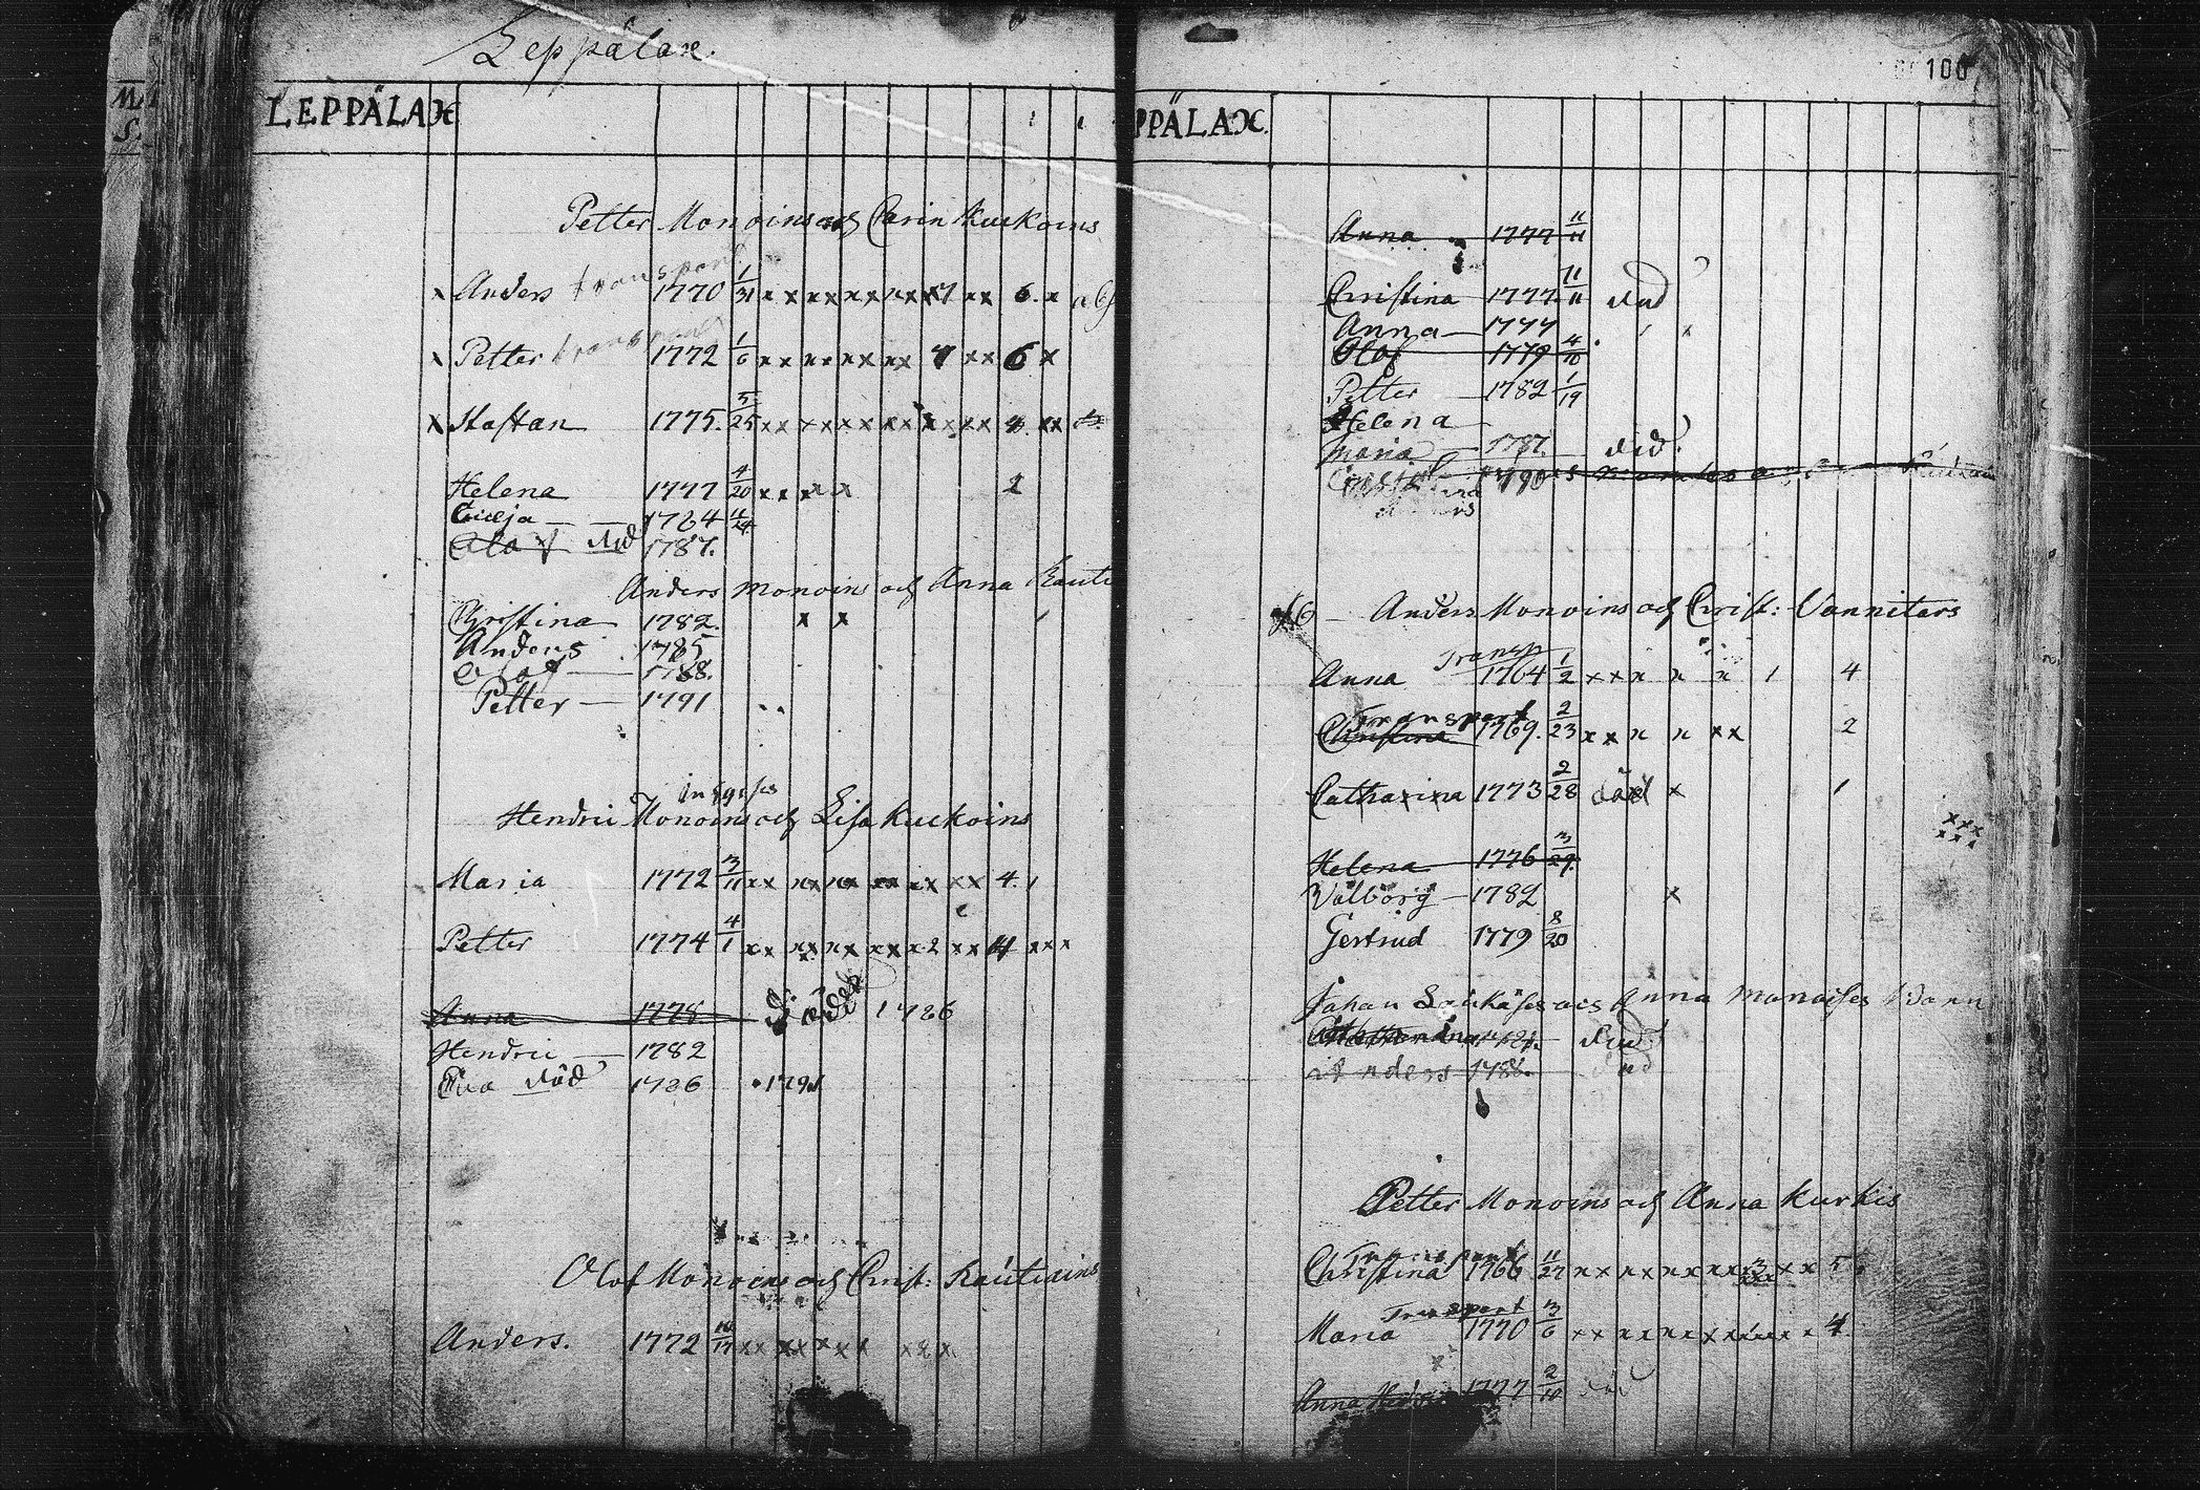 Leppälax.
LEPPÄLAX
Petter Monoins och Carin Kuckoins
x Anders transport 1770 1/31 x x x x x x x x x 7 x x 6. x abs
x Petter transport 1772 1/6 x x x x x x x x 7 x x 6 x
x Staffan 1775. 5/25 x x x x x x x x x x x x 4 x x
Helena 1777 4/20 x x x x 2
1784 11/24
Olof död 1787.
Anders Monoins och Anna Rauti
Christina 1782. x x
Anders 1785
Olof 1788.
Petter 1791
Hendric Monoins och Lisa Kuckoins
Maria 1772 3/11 x x x x x x x x x x x x 4. 1
Petter 1774 4/1 x x x x x x x x x 2 x x 4 x x x
Anna 1778 1786
Hendric 1782
Eva död 1786 1791
Olof Monoins och Christ: Rautiains
Anders. 1772 10/17 x x x x x x x x 2 x
100
PPÄLAX.
Anna 1777 11/11
Christina 1777. 11/11 död
Anna 1777 x
Olof 1779 4/10
Petter 1782 1/19
Helena
Maria 1787. död
1790
16 Anders Monoins och Christ: Vannitars
Transp
Anna 1764 1/2 x x x x x 1 4
Transport
Christina 1769. 2/23 x x x x x x 2
Catharina 1773 2/28 död x 1
x x x
x x x
Helena 1776 3/29.
Valborg 1782 x
Gertrud 1779 8/20
Johan och Anna Monoises Barn
död
Anders 1788. död
Petter Monoins och Anna Kurkis
Transport
Christina 1766 11/27 x x x x x x x x x x x 5
Transport
Maria 1770 3/6 x x x x x x x x x x x 4.
Anna 1777 2/10 död